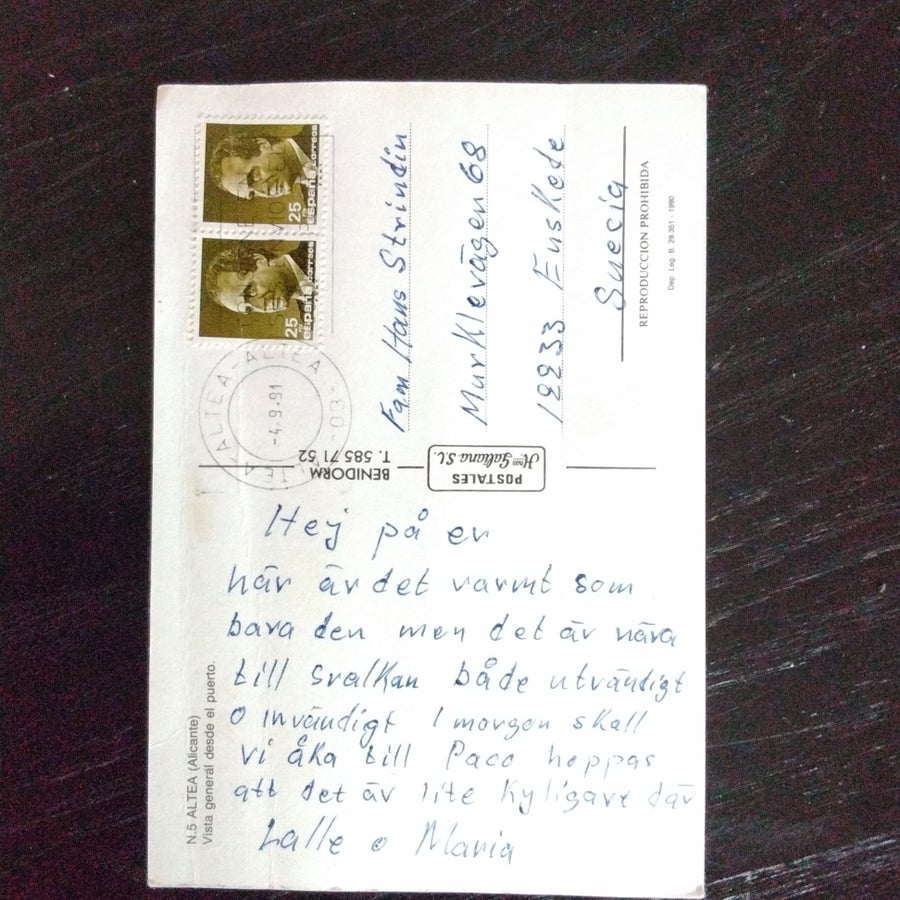 Hej på er
här är det varmt som
bara den men det är nära
till svalkan både utvändigt
o invändigt I morgon skall
vi åka till Paco hoppas
att det är lite kyligare där
Lalle o Maria
Fam Hans Strindin
Murklevägen 68
12233 Enskede
Suecia
REPRODUCCION PROHIBIDA
Dep. Leg. B. 29.351 - 1990
25 España correos
25 España correos
ALTEA-ALTEA
-4.9.91
-03-
POSTALES
Hnos Galiana S.L.
BENIDORM
T. 585 71 52
N.5 ALTEA (Alicante)
Vista generál desde el puerto.